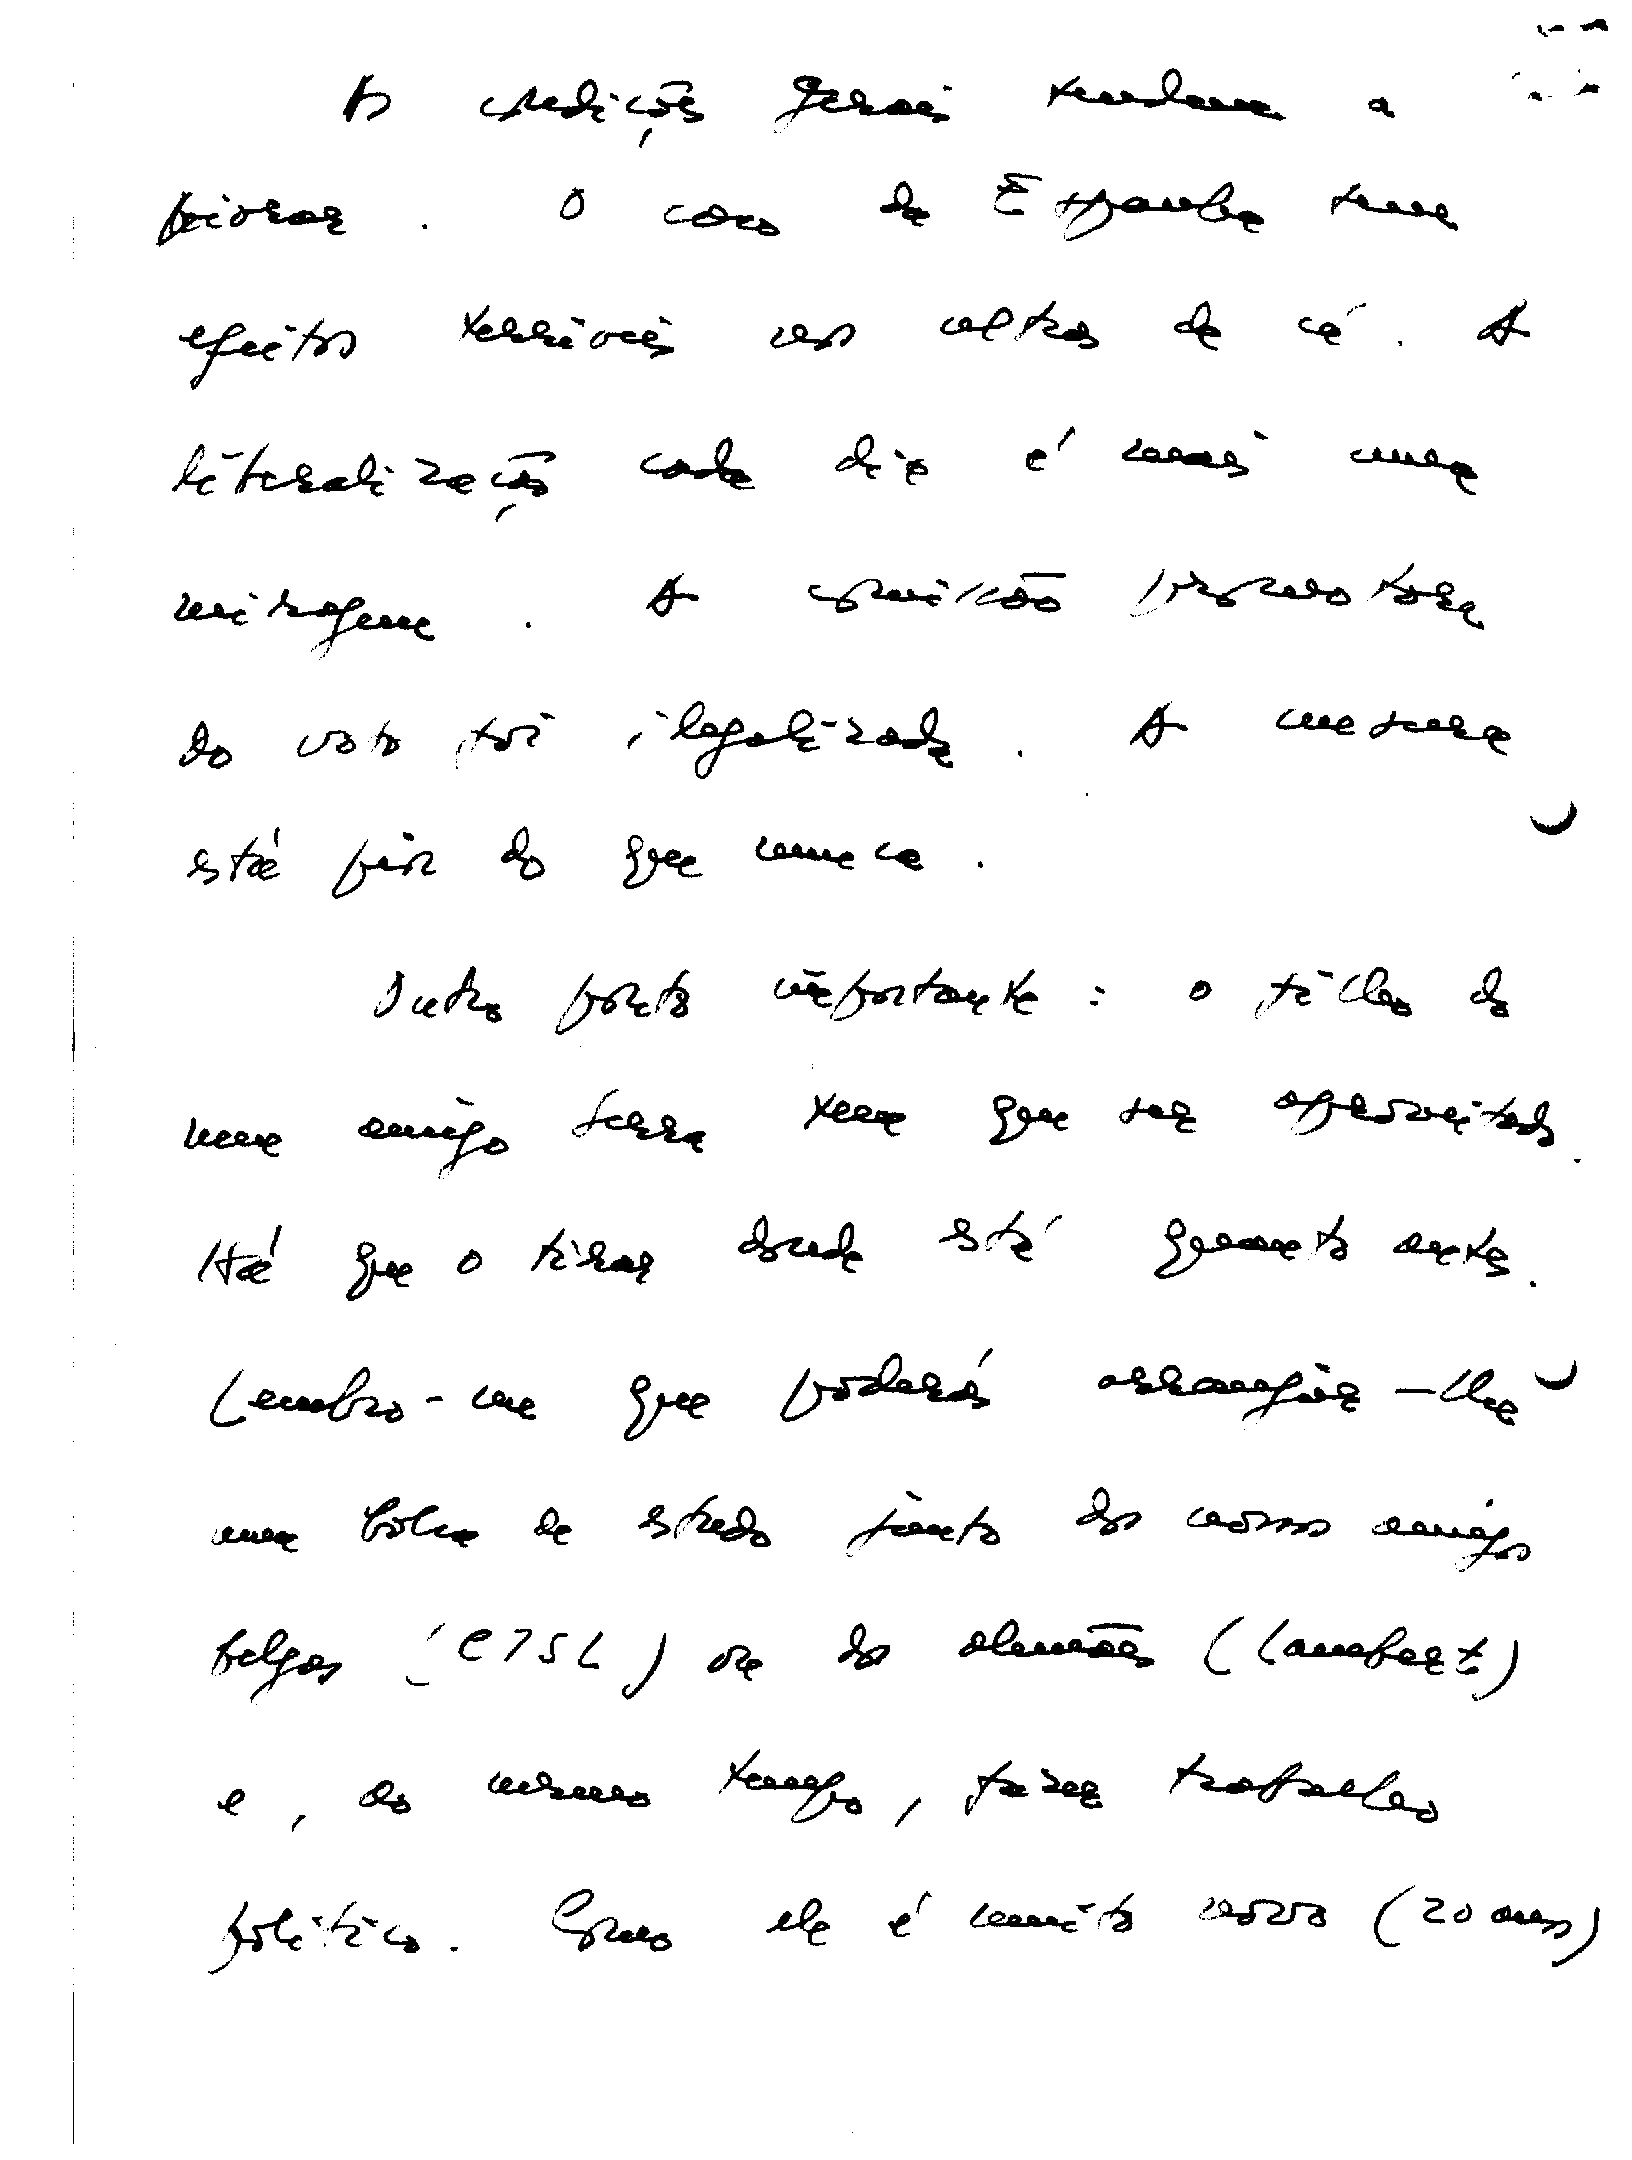 As condições gerais tendem a
piorar. O caso da Espanha tem
efeitos terríveis nos ultras de cá. A
liberalização cada dia é mais uma
miragem. A comissão promotora
do voto foi ilegalizada. A censura
está pior do que nunca.
Outro ponto importante: o filho do
meu amigo Serra tem que ser aproveitado.
Há que o tirar donde está quanto antes.
Lembro-me que poderás arranjar-lhe
uma bolsa de estudo junto dos nossos amigos
belgas (CISL) ou dos alemães (Lambert)
e, ao mesmo tempo, fazer trabalho
político. Como ele é muito novo (20 anos)